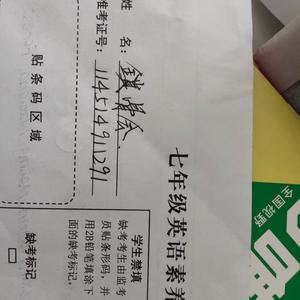 姓 名:
准考证号: 114514911291
贴条码区域
七年级英语素养
学生禁填
缺考考生由监考
员贴条形码,并
用2B铅笔填涂下
面的缺考标记。
缺考标记
全国视野